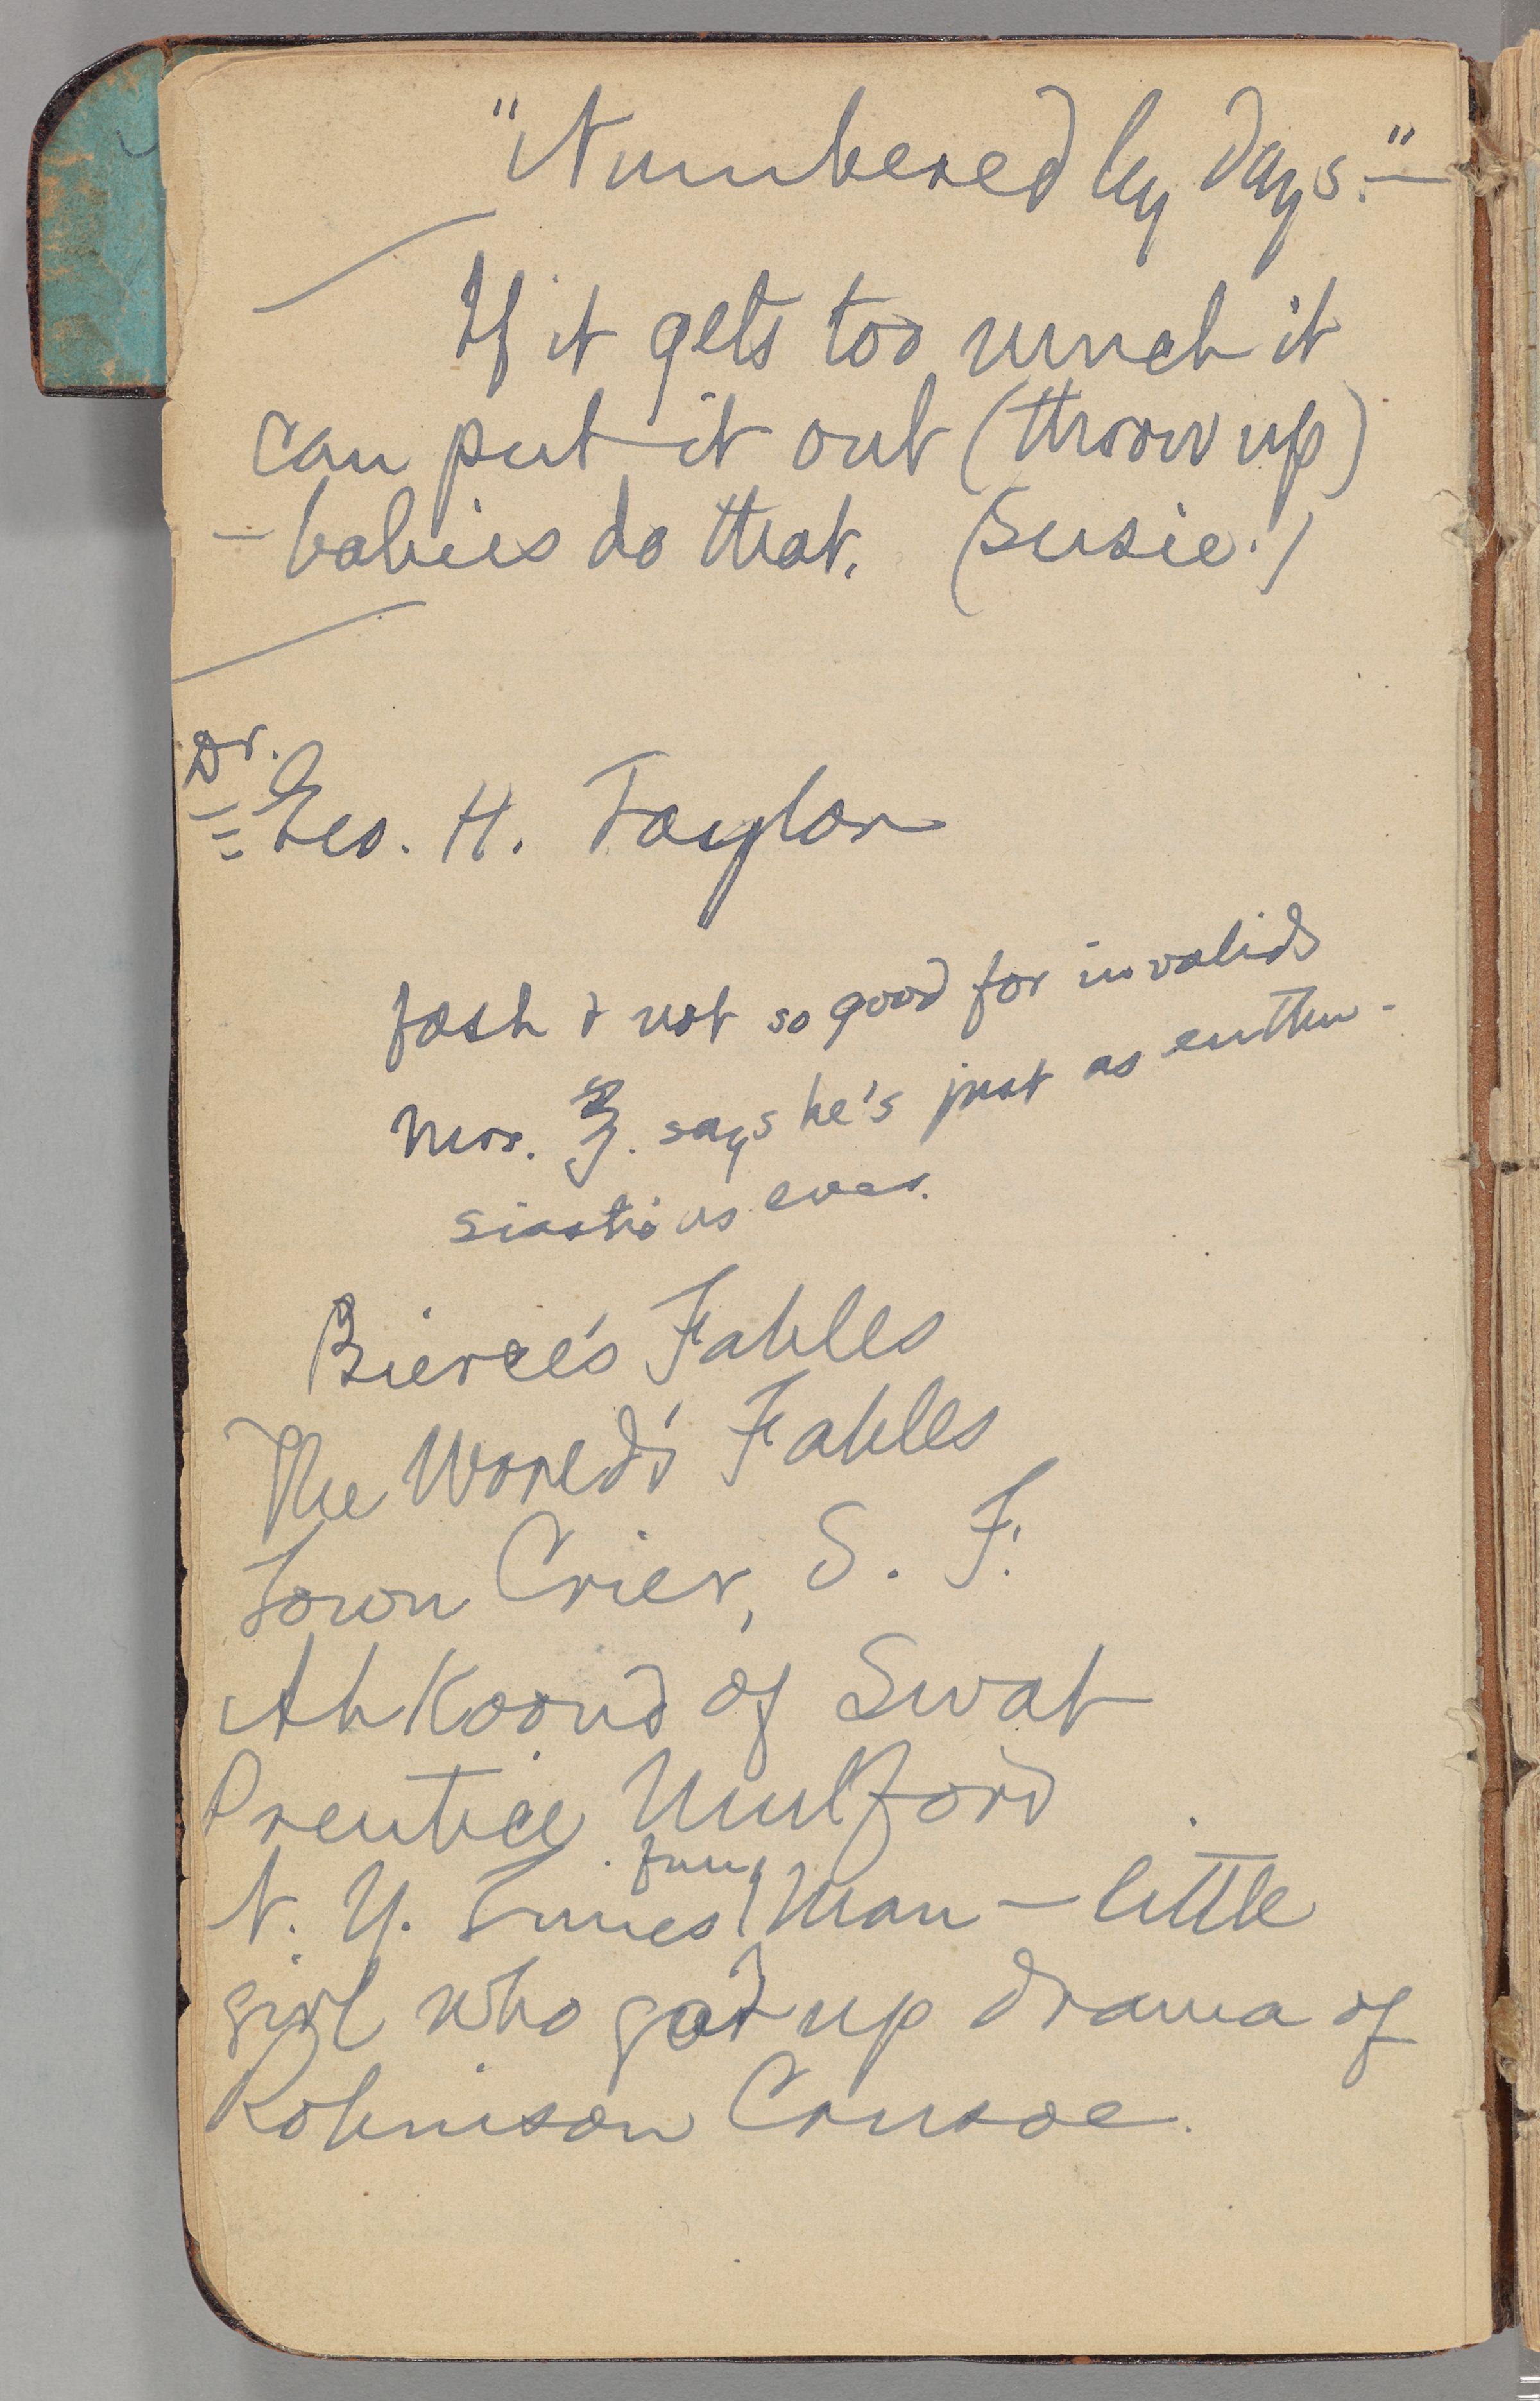 "Numbered by days."—
If it gets too much it
can put it out (throw up)
— babies do that. (Susie.)
Dr.
Geo. H. Taylor
fash & not so good for invalids
Mrs. F. says he's just as enthu-
siastic as ever.
Bierce's Fables
The World's Fables
Town Crier, S. F.
Ah Koond of Swat
Prentice Mulford
funny
N. Y. Times Man — little
girl who got up drama of
Robinson Crusoe.